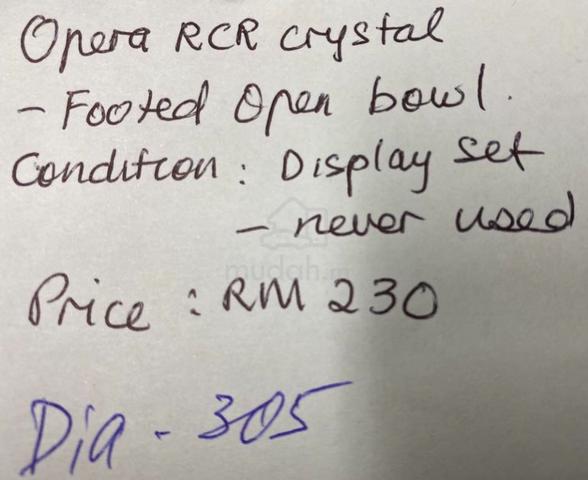 Opera RCR crystal
- Footed Open bowl.
Condition : Display set
- never used
mudah.my
Price : RM 230
Dia - 305